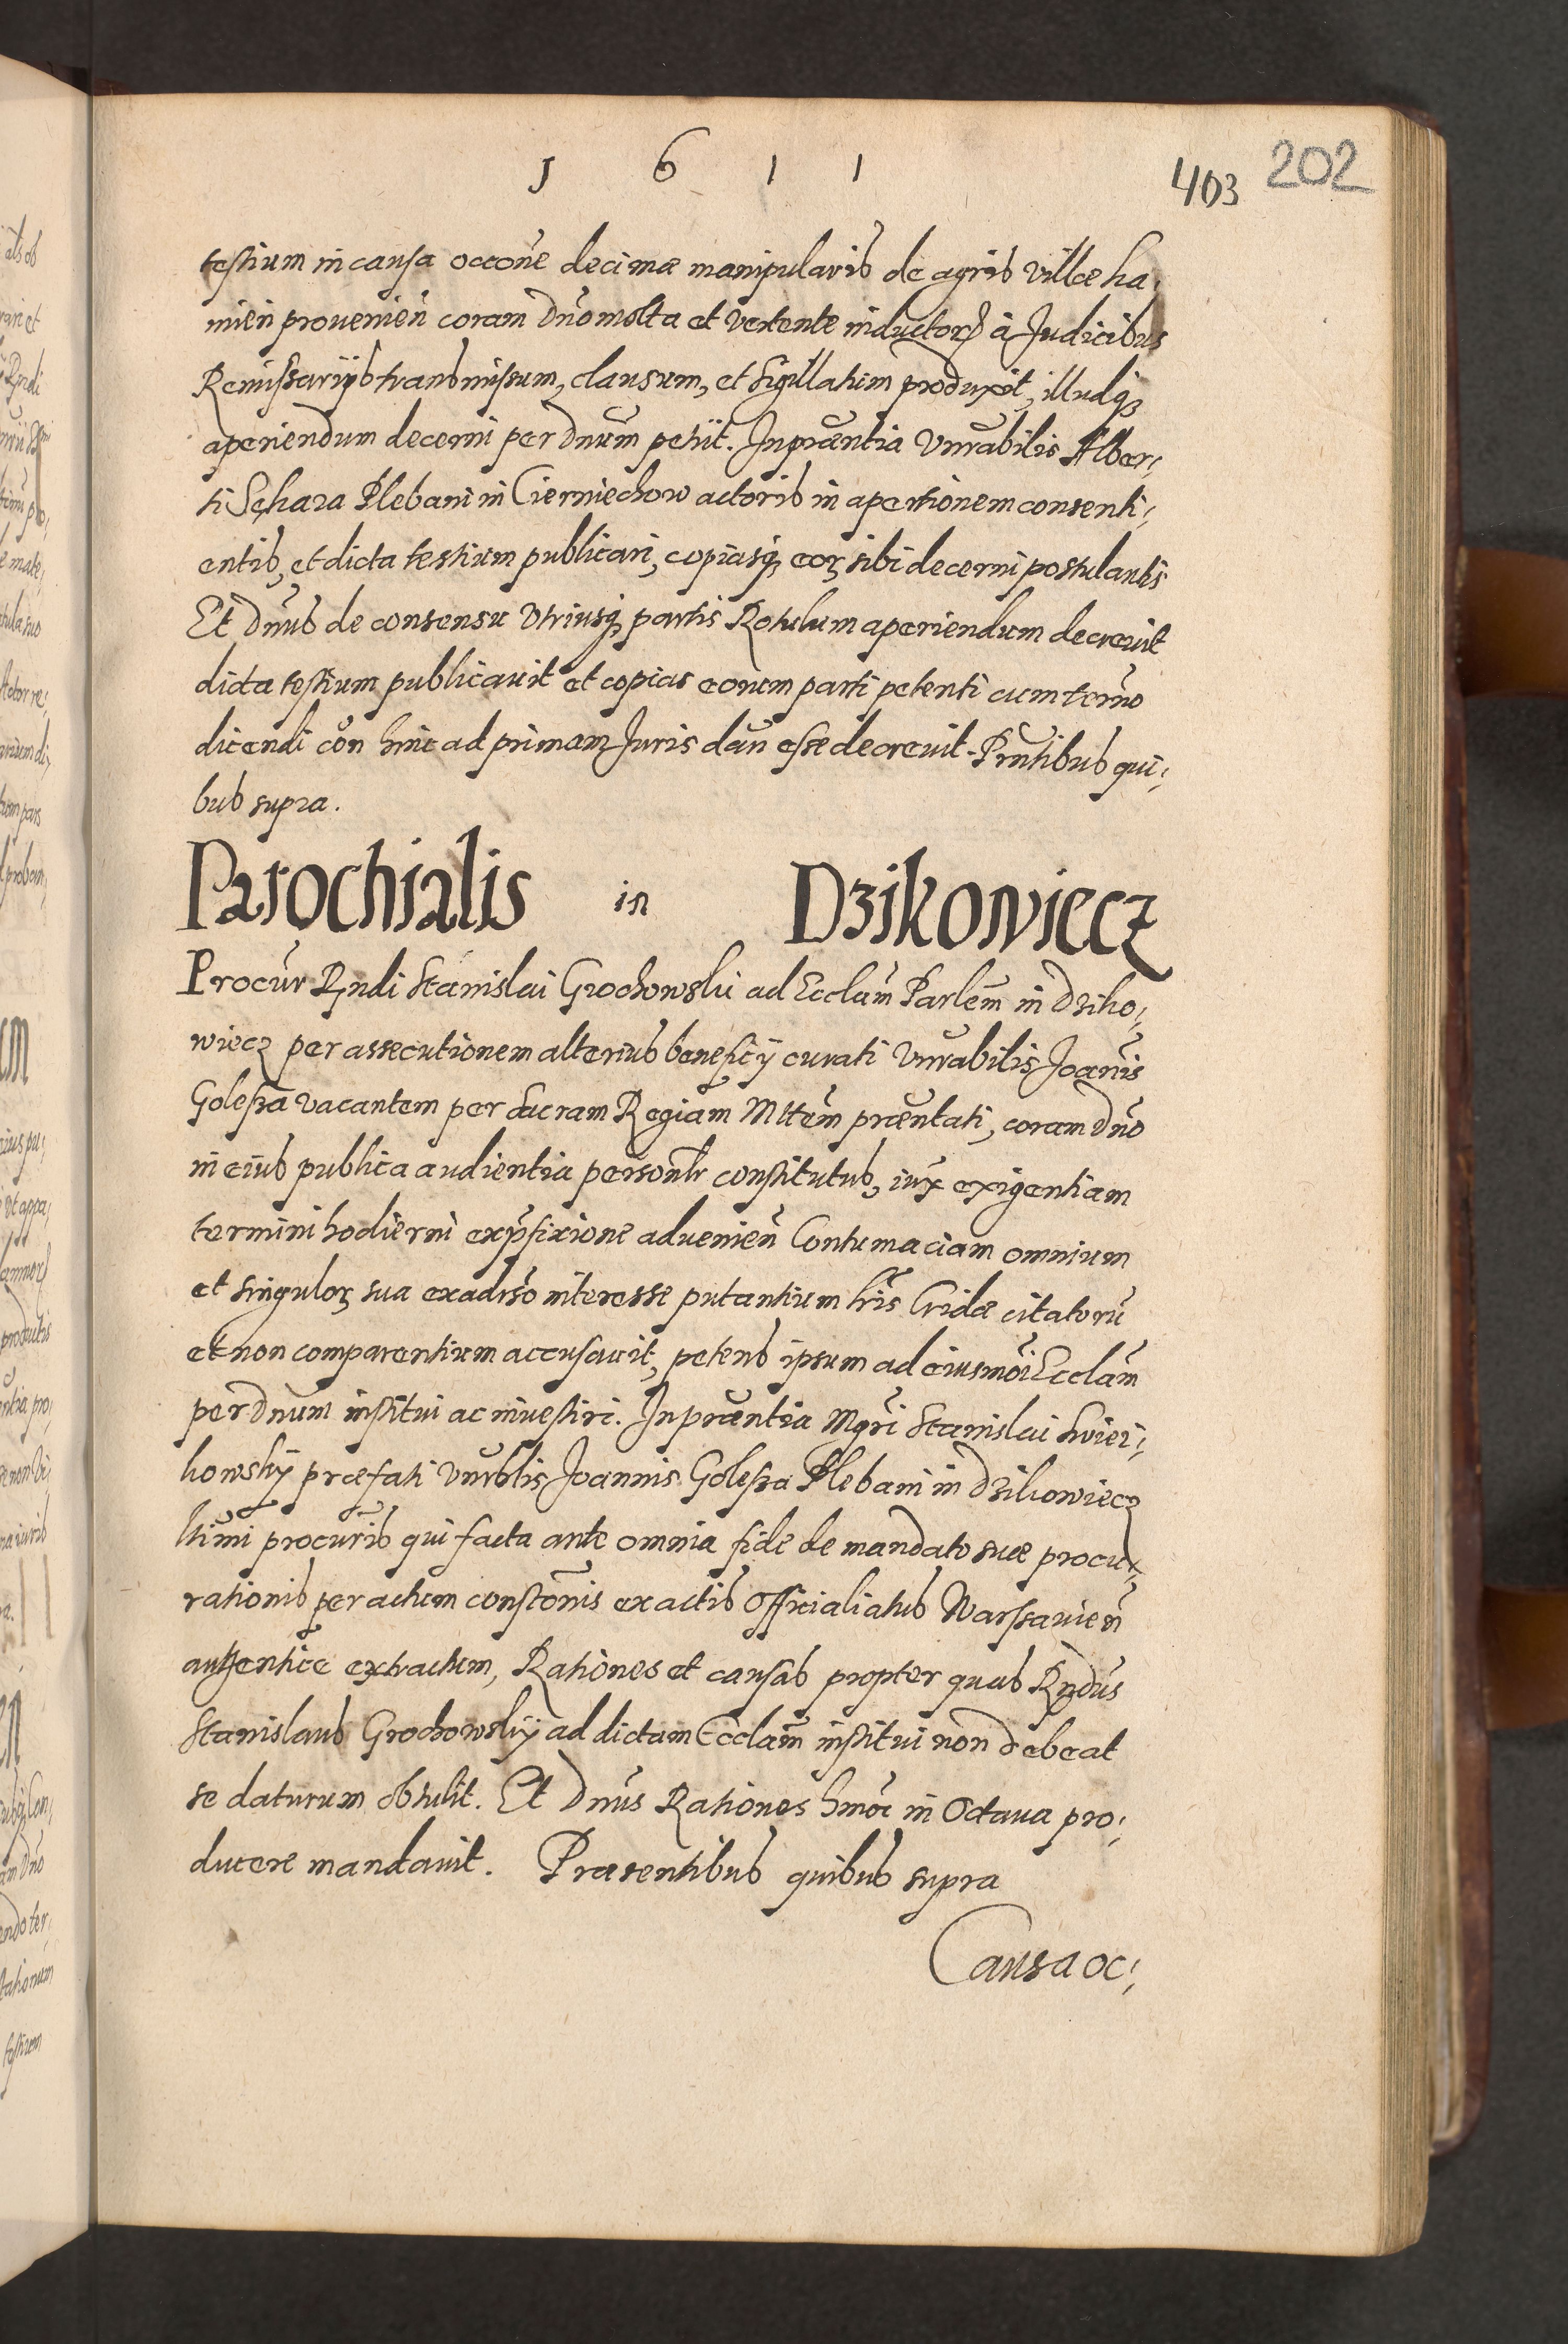 1 6 1 1
403 202
testium in causa occõne decimæ manipularis de agris villæ ha,
mień prouenień coram Dño mota et vertente inductorũ à Judicibus
Remissarijs transmissum, clausum, et sigillatim produxit, illudq3
aperiendum decerni per Dnũm petijt. In præntia Vnrabilis Alber,
ti Schara Plebani in Cierniechow actoris in apertionem consenti,
entis, et dicta testium publicari, copiasq3 eorȝ sibi decerni postulantis
Et Dnũs de consensu Vtriusq3 partis Rotulum aperiendum decreuit
dicta testium publicauit et copias eorum parti petenti cum termño
dicendi cõn hinc ad primam Juris dań esse decreuit. Prñtibus qui,
bus supra.
Parochialis in Dzikowiecz
Procur̃ Rñdi Stanislai Grochowski ad Ecclãm Parlẽm in Dziko,
wiecz per assecutionem alterius beneficij curati Vnrabilis Joañis
Golesza vacantem per Sacram Regiam Mttẽm præntati, coram Dño
in eius publica audientia personlr constitutus, iux exigentiam
termini hodierni ex pr̃fixione aduenień Contumaciam omnium
et singulorȝ sua exadrso interesse putantium lrĩs Cridæ citatorũ
et non comparentium accusauit, petens ipsum ad eiusmõi Ecclãm
per Dnum institui ac inuestiri. In præntia Mgrĩ Stanislai Swier,
kowskij præfati Vnrblis Joannis Golesza Plebani in Dzikowiecz
ltimi procuris qui facta ante omnia fide de mandato suæ procu,
rationis per actum constõnis ex actis Officialiatus Warssauień
authentice extractum, Rationes et causas propter quas Rndũs
Stanislaus Grochowskij ad dictam Ecclãm institui non debeat
se daturum obtulit. Et Dnũs Rationes hmõi in Octaua pro,
ducere mandauit. Præsentibus quibus supra
Causa oc,